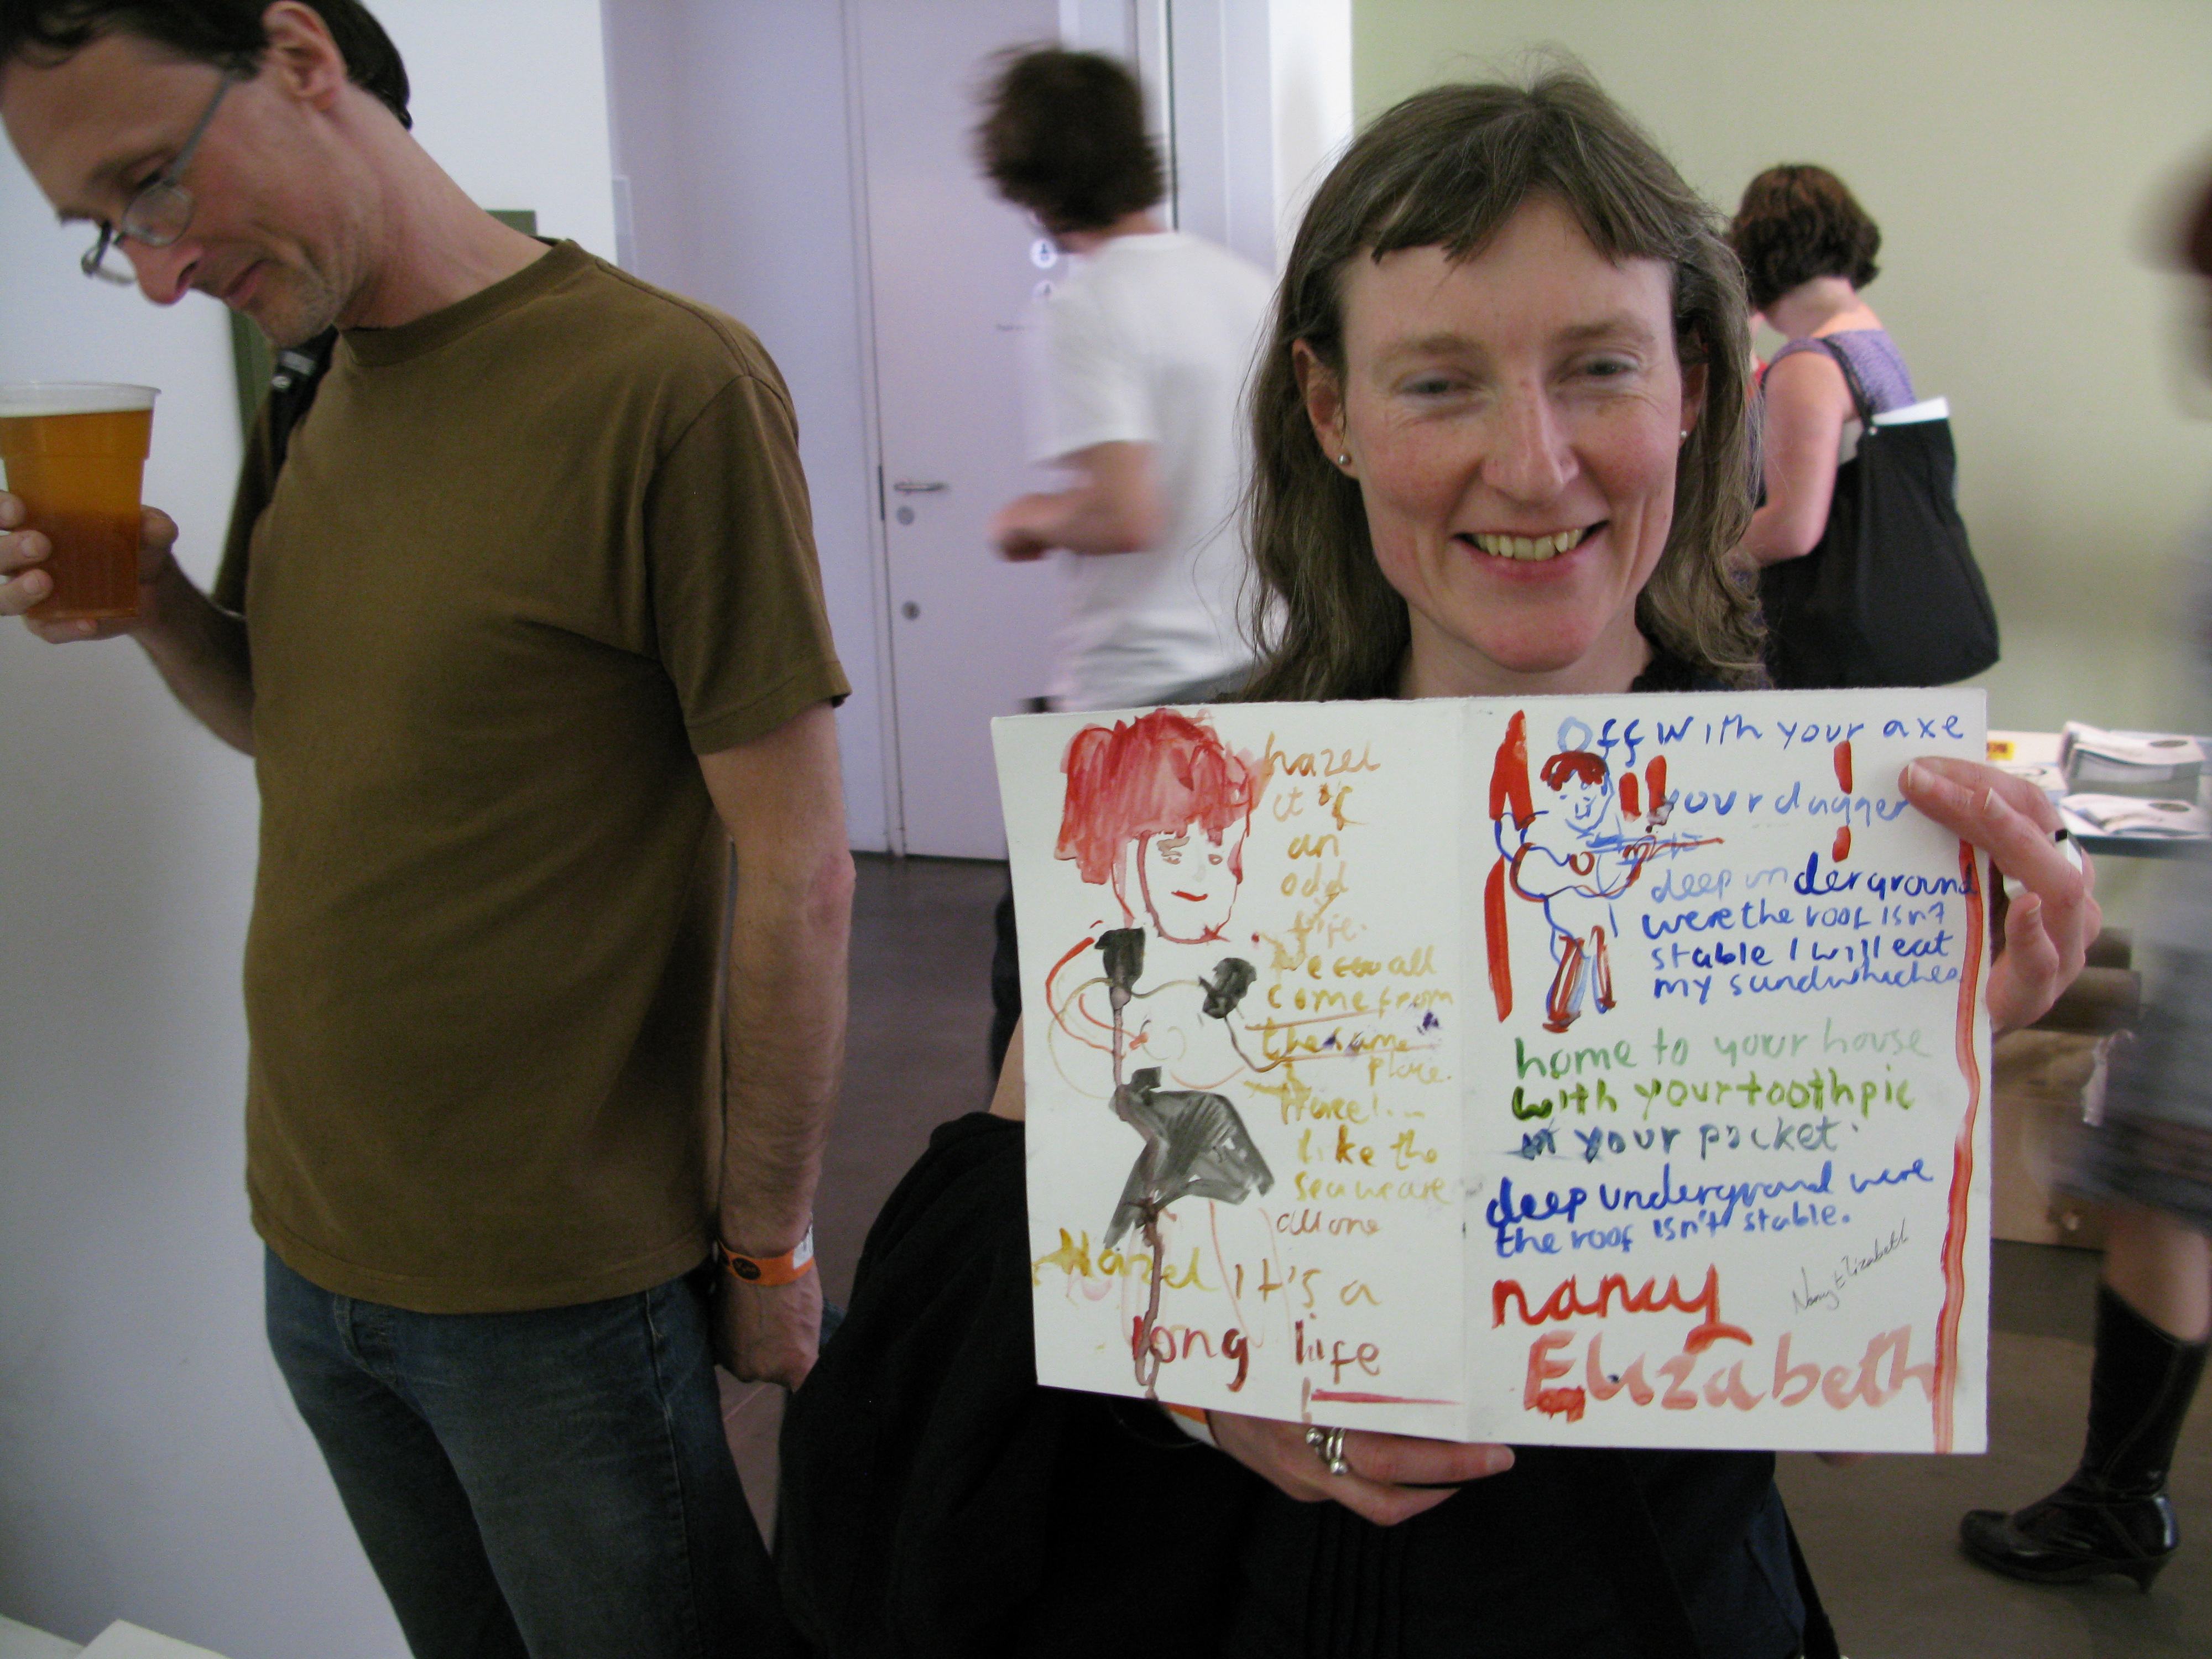 hazel
it's
an
odd
life.
we all
come from
the same
place.
Hazel...
like the
sea we are
all one
Hazel it's a
long life
Off with your axe
your dagger
deep underground
were the roof isn't
stable I will eat
my sandwhiches
home to your house
with your toothpic
in your pocket.
deep underground were
the roof isn't stable.
Nancy Elizabeth
nancy
Elizabeth